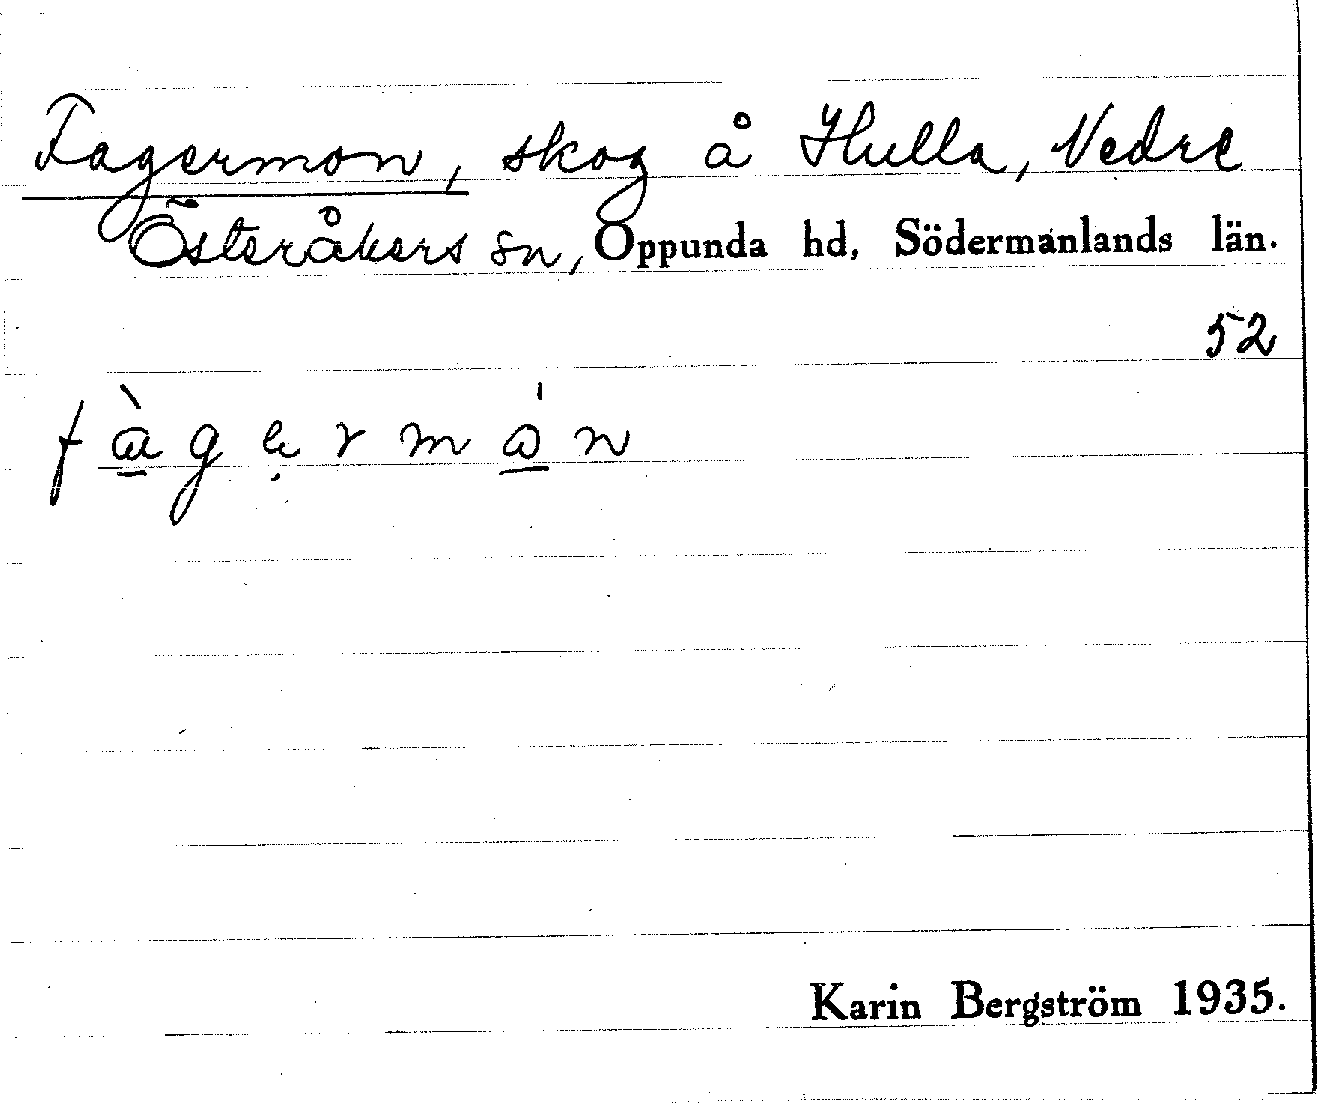 Fagermon, skog å Hulla, Nedre
Österåkers sn, Oppunda hd, Södermanlands län.
52
fàgẹrmȯn
Karin Bergström 1935.